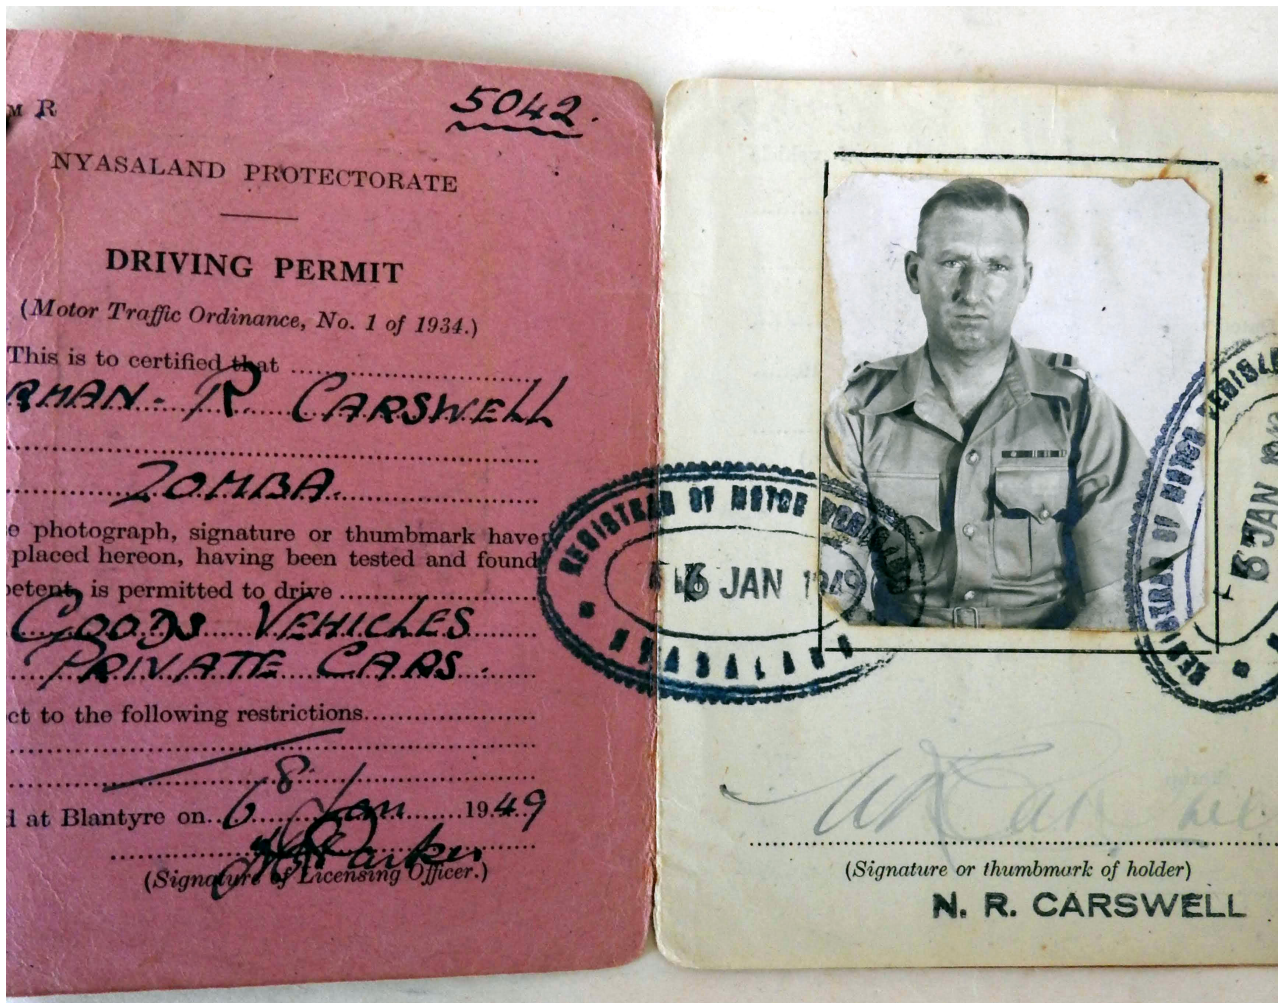 M R
5042.
NYASALAND PROTECTORATE
DRIVING PERMIT
(Motor Traffic Ordinance, No. 1 of 1934.)
This is to certified that
RMAN. R. CARSWELL
ZOMBA.
e photograph, signature or thumbmark have
placed hereon, having been tested and found
petent, is permitted to drive
GOODS VEHICLES
PRIVATE CARS.
ct to the following restrictions
d at Blantyre on 6 Jan 1949
(Signature of Licensing Officer.)
REGISTRAR OF MOTOR VEHICLES
6 JAN 1949
NYASALAND
REGISTRAR OF MOTOR VEHICLES
6 JAN 1949
(Signature or thumbmark of holder)
N. R. CARSWELL